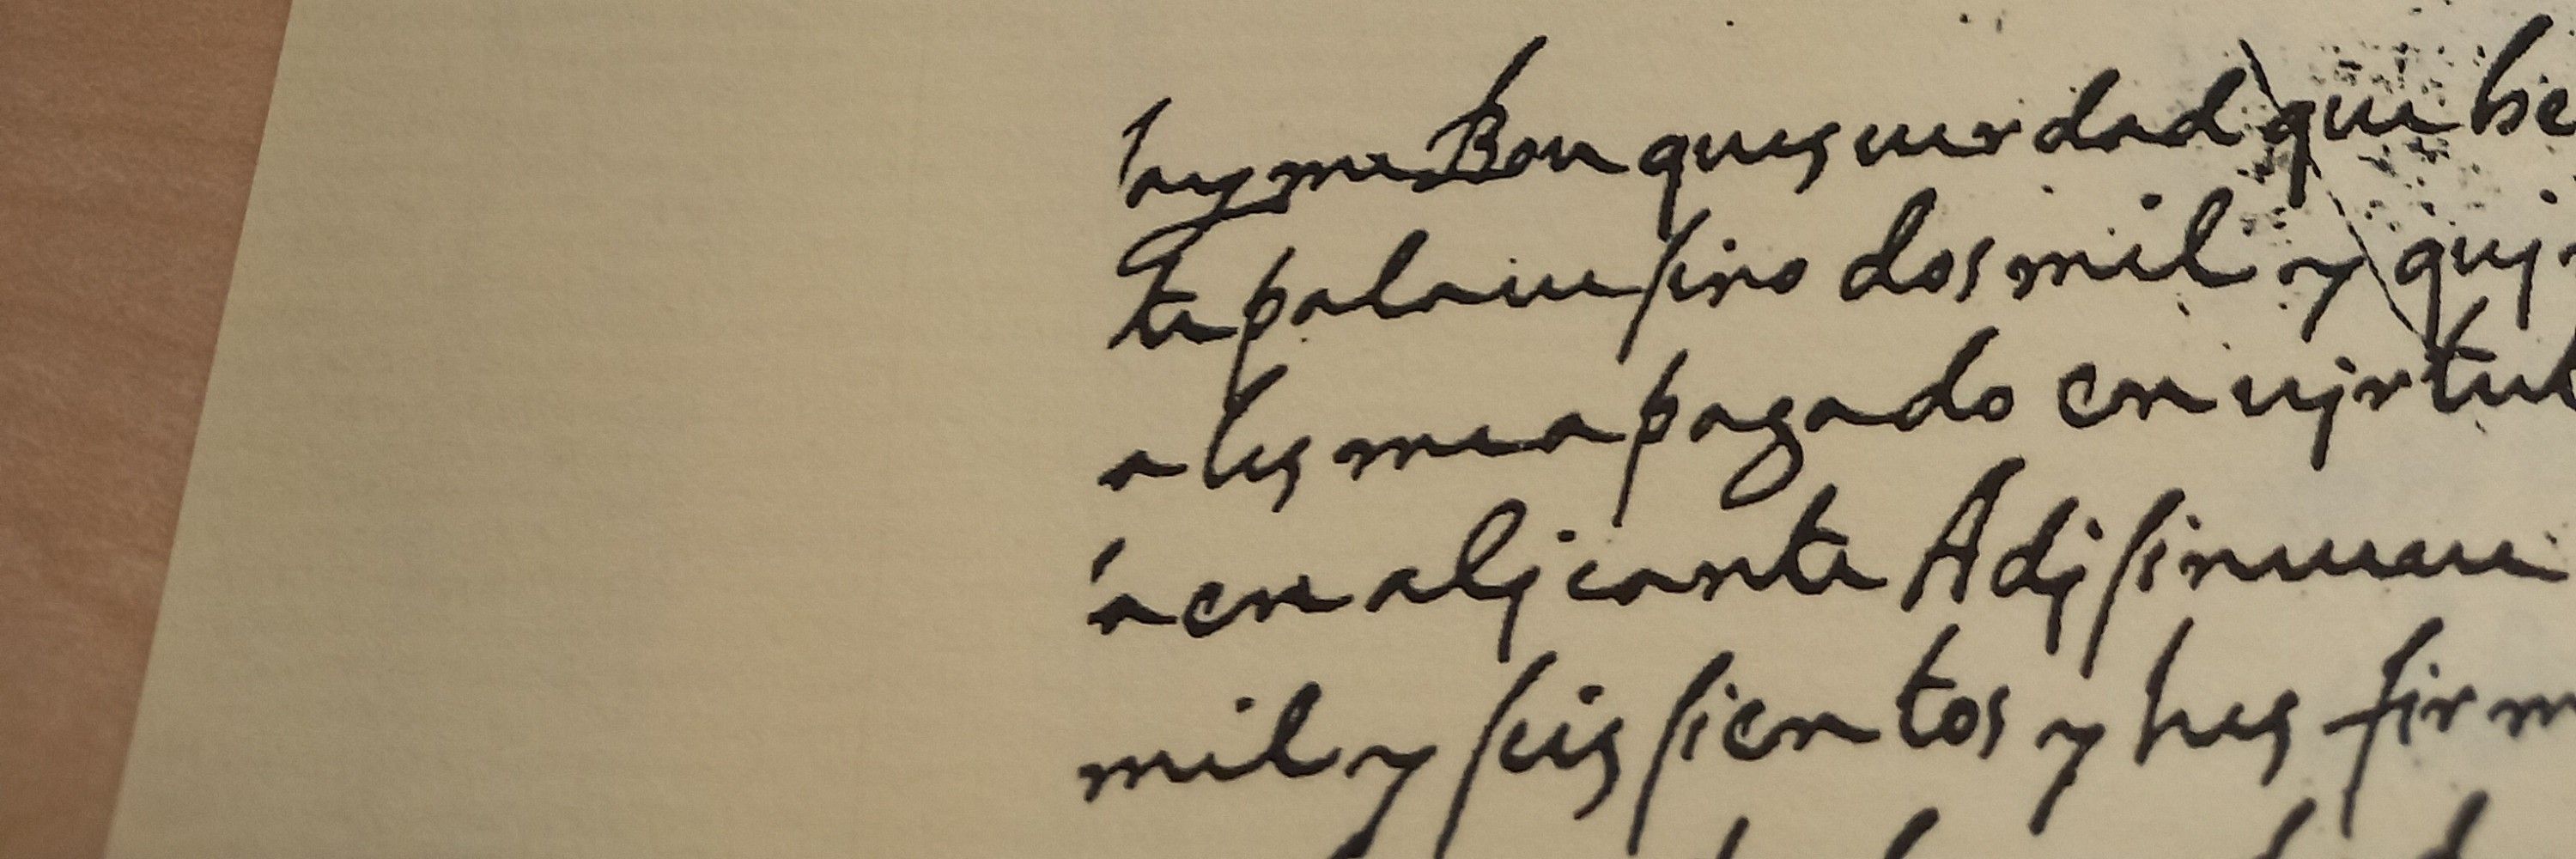 Jayme Bou ques uerdad que he
te palaui sino dos mil y quin
ales me a pagado en uirtul
a en alicante A dj si nueue
mil y seis sientos y hes firm